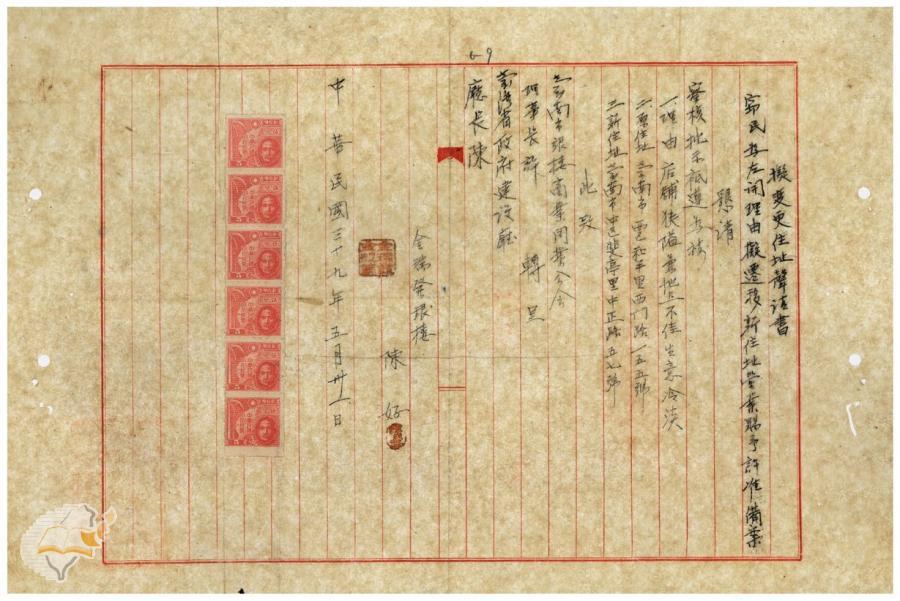 擬變更住址聲請書
竊民為左開理由擬遷移新住址營業賜予許准備案
懇請
察核批示祇遵為禱
一、理由 店舖狹隘兼地上不佳生意冷淡
二、原住址 台南市西區和平里西門路一五五號
三、新住址 台南市中區斐亭里中正路五七號
此致
台南市銀樓商業同業公會
理事長許 轉呈
臺灣省政府建設廳
廳長陳
金瑞發銀樓
陳 好
中華民國三十九年五月卅一日